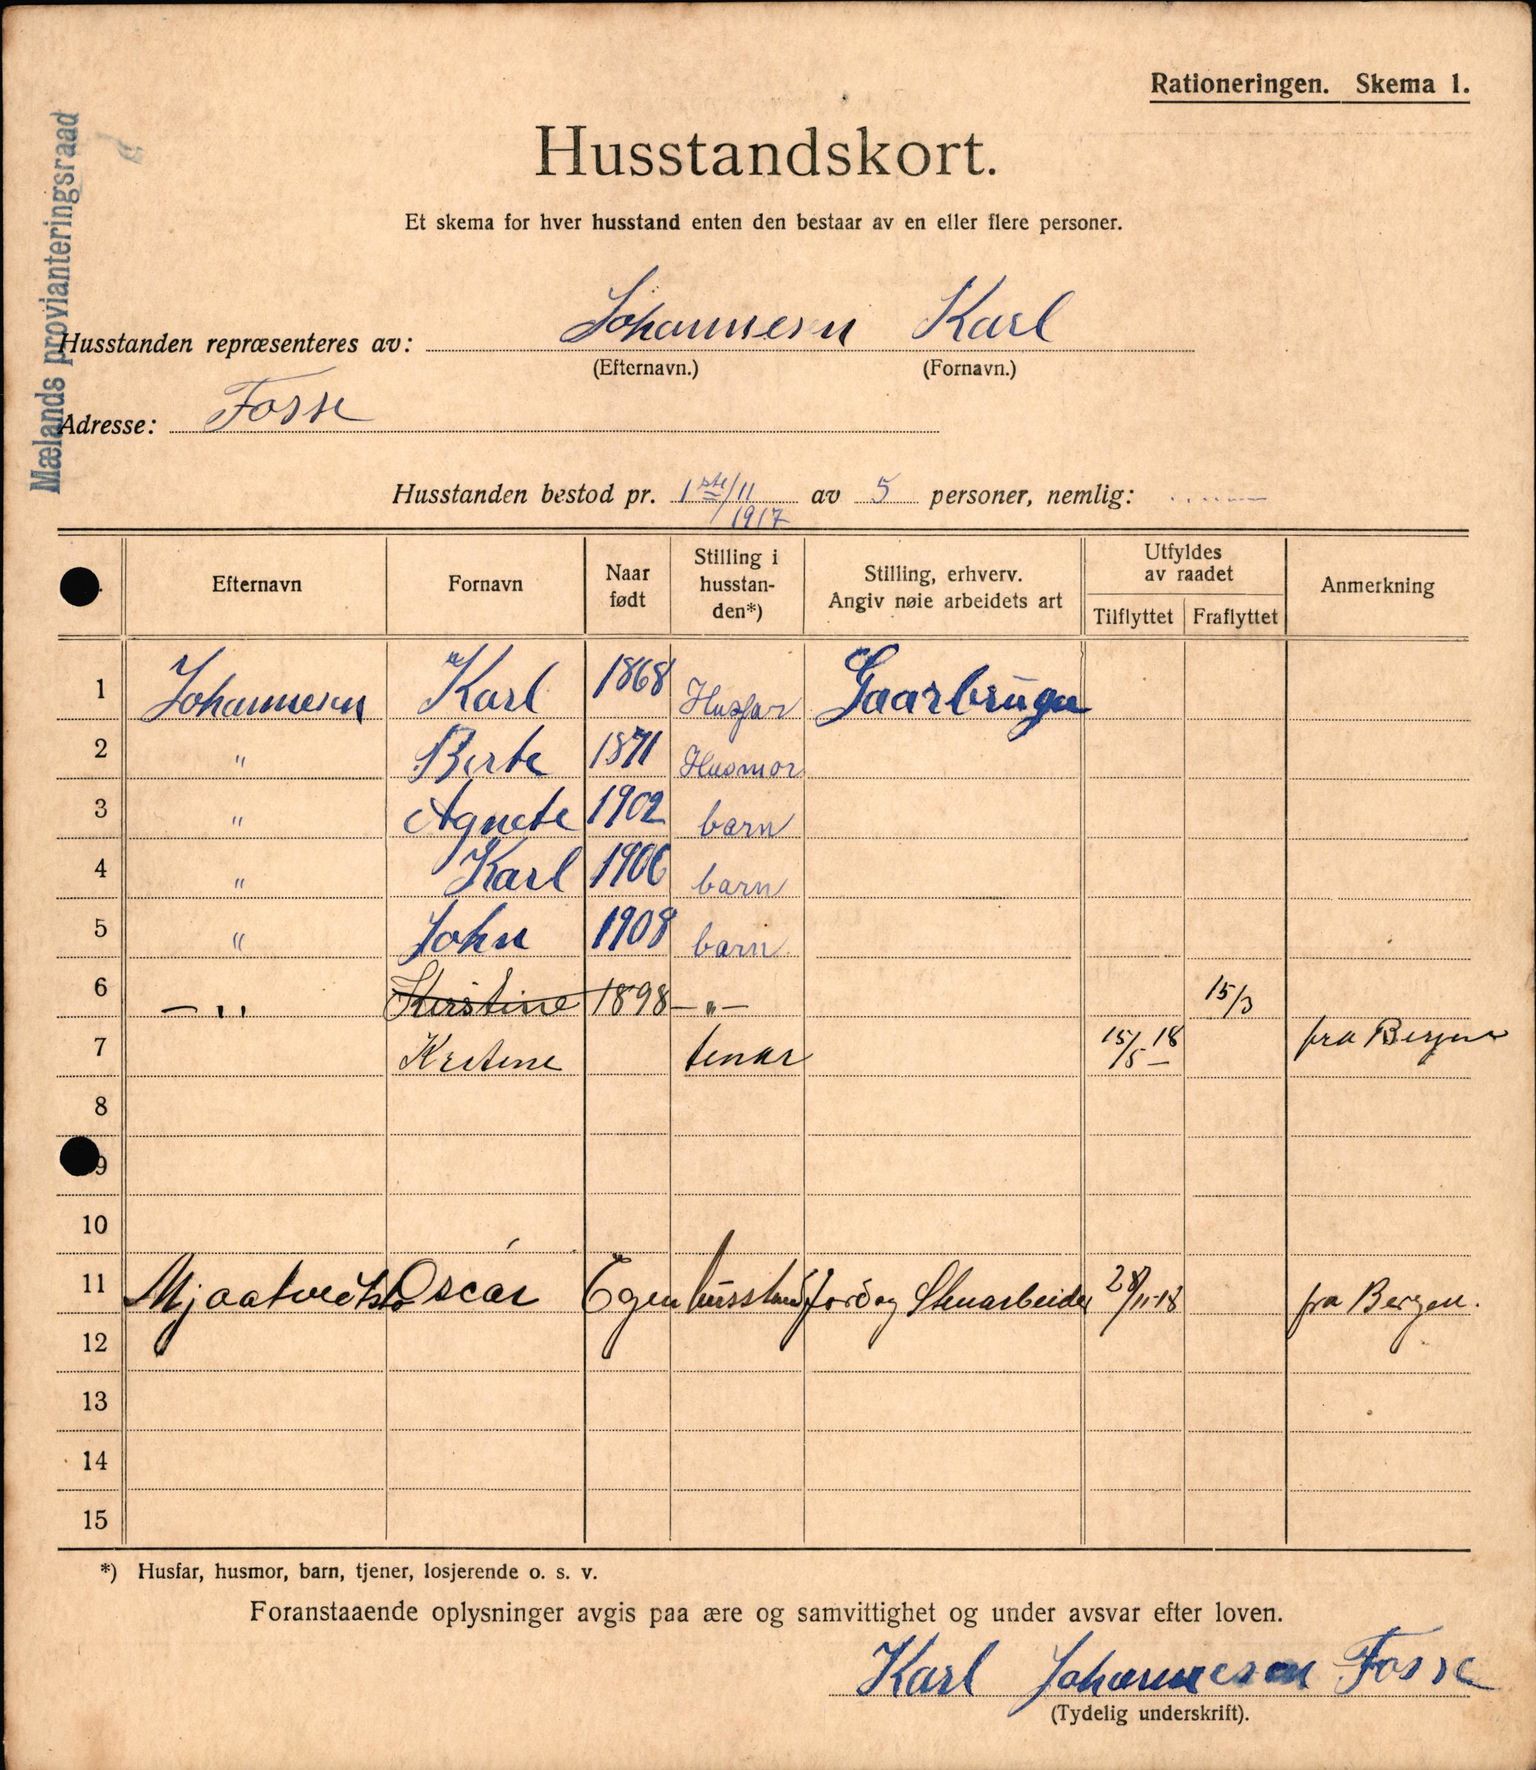 Rationeringen. Skema 1.
Mælands provianteringsraad
Husstandskort.
Et skema for hver husstand enten den bestaar av en eller flere personer.
Husstanden repræsenteres av: Johannesen Karl
(Efternavn.) (Fornavn.)
Adresse: Fosse
Husstanden bestod pr. 1ste/11 1917 av 5 personer, nemlig:
Efternavn Fornavn Naar født Stilling i husstanden*) Stilling, erhverv. Angiv nøie arbeidets art Utfyldes av raadet Tilflyttet Fraflyttet Anmerkning
1 Johannesen Karl 1868 Husfar Gaarbruger
2 " Berte 1871 Husmor
3 " Agnete 1902 barn
4 " Karl 1906 barn
5 " John 1908 barn.
6 — " Kristine 1898 — " — 15/3
7 Kristine tener 15/5 - 18 fra Bergen
8
9
10
11 Oscar Egen husstand Jord og Stenarbeider 28/11-18 fra Bergen.
12
13
14
15
*) Husfar, husmor, barn, tjener, losjerende o. s. v.
Foranstaaende oplysninger avgis paa ære og samvittighet og under avsvar efter loven.
Karl Johannesen Fosse
(Tydelig underskrift).